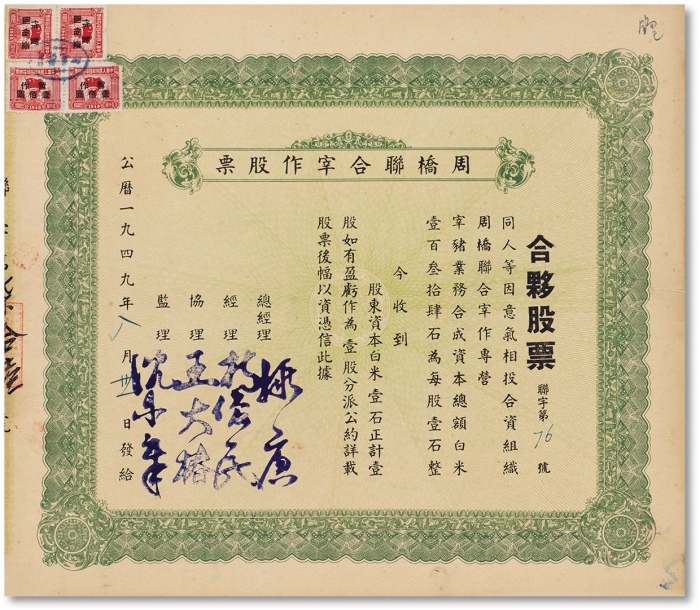 周橋聯合宰作股票
合夥股票 聯字第76號
同人等因意氣相投合資組織
周橋聯合宰作專營
宰豬業務合成資本總額白米
壹百叁拾肆石為每股壹石整
今收到
股東資本白米壹石正計壹
股如有盈虧作為壹股分派公約詳載
股票後幅以資憑信此據
總經理
經理
協理 王大椿
監理
公曆一九四九年八月廿日發給